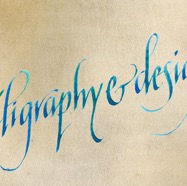 lligraphy & desig